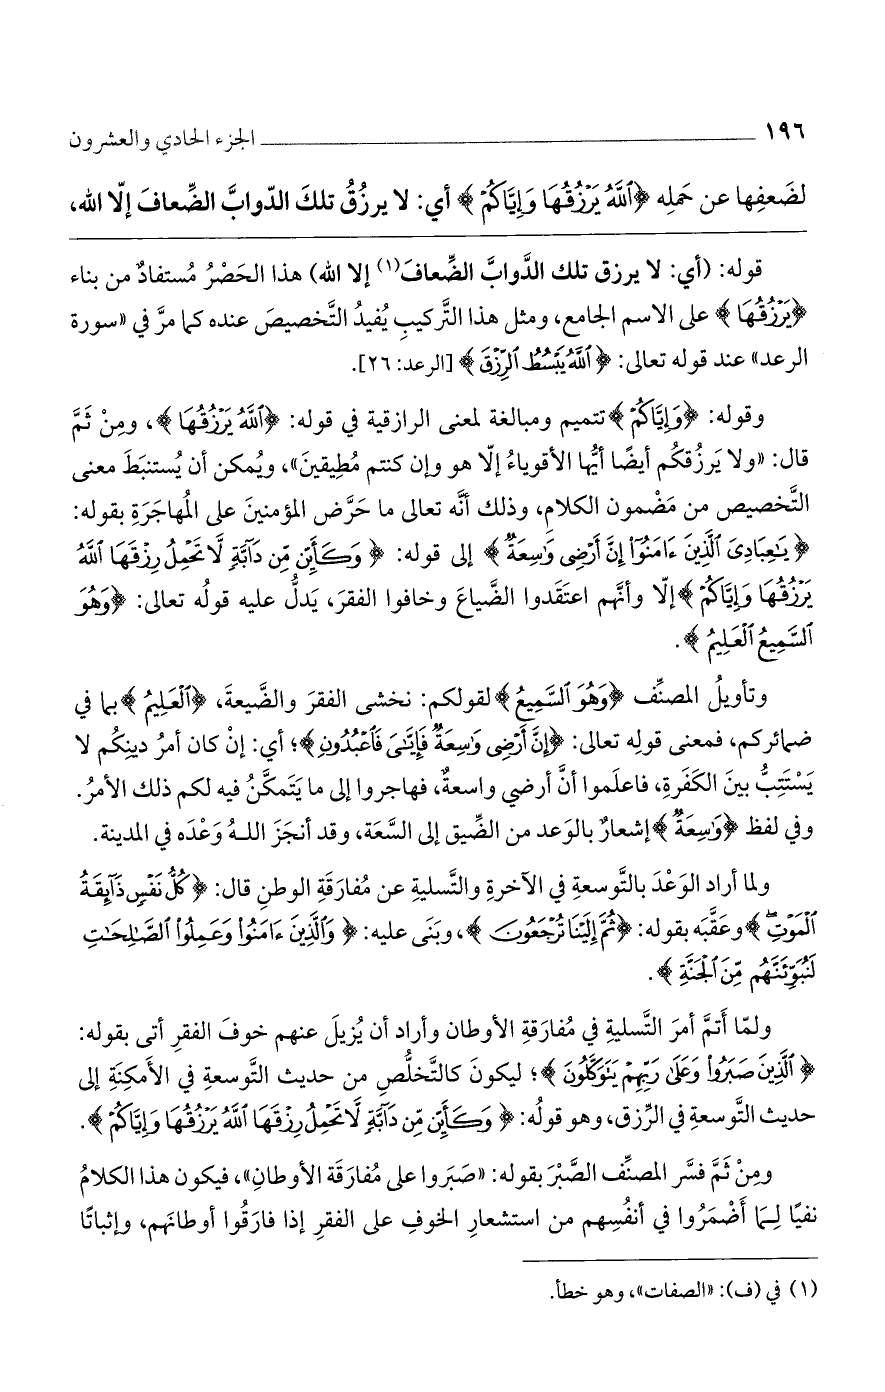 ١٩٦ الجزء الحادي والعشرون
لضَعفِها عن حَملِه ﴿ٱللَّهُ يَرْزُقُهَا وَإِيَّاكُمْ﴾ أي: لا يرزُقُ تلكَ الدّوابَّ الضِّعافَ إلّا الله،
قوله: (أي: لا يرزق تلك الدَّوابَّ الضِّعافَ(١) إلا الله) هذا الحَصْرُ مُستفادٌ من بناء
﴿يَرْزُقُهَا﴾ على الاسم الجامع، ومثل هذا التَّركيبِ يُفيدُ التَّخصيصَ عنده كما مرَّ في «سورة
الرعد» عند قوله تعالى: ﴿ٱللَّهُ يَبْسُطُ ٱلرِّزْقَ﴾ [الرعد: ٢٦].
وقوله: ﴿وَإِيَّاكُمْ﴾ تتميم ومبالغة لمعنى الرازقية في قوله: ﴿ٱللَّهُ يَرْزُقُهَا﴾، ومِنْ ثَمَّ
قال: «ولا يَرزُقكُم أيضًا أيُّها الأقوياءُ إلّا هو وإن كنتم مُطِيقينَ»، ويُمكن أن يُستنبَطَ معنى
التَّخصيص من مَضْمون الكلام، وذلك أنَّه تعالى ما حَرَّض المؤمنينَ على المُهاجَرَةِ بقوله:
﴿يَٰعِبَادِىَ ٱلَّذِينَ ءَامَنُوٓا۟ إِنَّ أَرْضِى وَٰسِعَةٌ﴾ إلى قوله: ﴿وَكَأَيِّن مِّن دَآبَّةٍ لَّا تَحْمِلُ رِزْقَهَا ٱللَّهُ
يَرْزُقُهَا وَإِيَّاكُمْ﴾ إلّا وأنَّهم اعتَقَدوا الضَّياعَ وخافوا الفقرَ، يَدلُّ عليه قولُه تعالى: ﴿وَهُوَ
ٱلسَّمِيعُ ٱلْعَلِيمُ﴾.
وتأويلُ المصنِّف ﴿وَهُوَ ٱلسَّمِيعُ﴾ لقولكم: نخشى الفقرَ والضَّيعةَ، ﴿ٱلْعَلِيمُ﴾ بما في
ضمائركم، فمعنى قولِه تعالى: ﴿إِنَّ أَرْضِى وَٰسِعَةٌ فَإِيَّٰىَ فَٱعْبُدُونِ﴾؛ أي: إنْ كان أمرُ دينِكُم لا
يَسْتَتِبُّ بينَ الكَفَرةِ، فاعلَموا أنَّ أرضي واسعةٌ، فهاجروا إلى ما يَتَمكَّنُ فيه لكم ذلك الأمرُ.
وفي لفظ ﴿وَٰسِعَةٌ﴾ إشعارٌ بالوَعد من الضِّيق إلى السَّعَة، وقد أنجَزَ اللهُ وَعْدَه في المدينة.
ولما أراد الوَعْدَ بالتَّوسعةِ في الآخرةِ والتَّسليةِ عن مُفارَقَةِ الوطنِ قال: ﴿كُلُّ نَفْسٍ ذَآئِقَةُ
ٱلْمَوْتِ﴾ وعَقَّبَه بقوله: ﴿ثُمَّ إِلَيْنَا تُرْجَعُونَ﴾، وبَنَى عليه: ﴿وَٱلَّذِينَ ءَامَنُوا۟ وَعَمِلُوا۟ ٱلصَّٰلِحَٰتِ
لَنُبَوِّئَنَّهُم مِّنَ ٱلْجَنَّةِ﴾.
ولمّا أتَمَّ أمرَ التَّسليةِ في مُفارَقةِ الأوطان وأراد أن يُزيلَ عنهم خوفَ الفقرِ أتى بقوله:
﴿ٱلَّذِينَ صَبَرُوا۟ وَعَلَىٰ رَبِّهِمْ يَتَوَكَّلُونَ﴾؛ ليكونَ كالتَّخلُّصِ من حديث التَّوسعةِ في الأمكِنَةِ إلى
حديث التَّوسعةِ في الرِّزق، وهو قولُه: ﴿وَكَأَيِّن مِّن دَآبَّةٍ لَّا تَحْمِلُ رِزْقَهَا ٱللَّهُ يَرْزُقُهَا وَإِيَّاكُمْ﴾.
ومِنْ ثَمَّ فسَّر المصنِّف الصَّبْرَ بقوله: «صَبَروا على مُفارَقَة الأوطانِ»، فيكون هذا الكلامُ
نفيًا لِـمَا أَضْمَرُوا في أنفُسِهم من استشعارِ الخوفِ على الفقرِ إذا فارَقُوا أوطانَهم، وإثباتًا
(١) في (ف): «الصفات»، وهو خطأ.